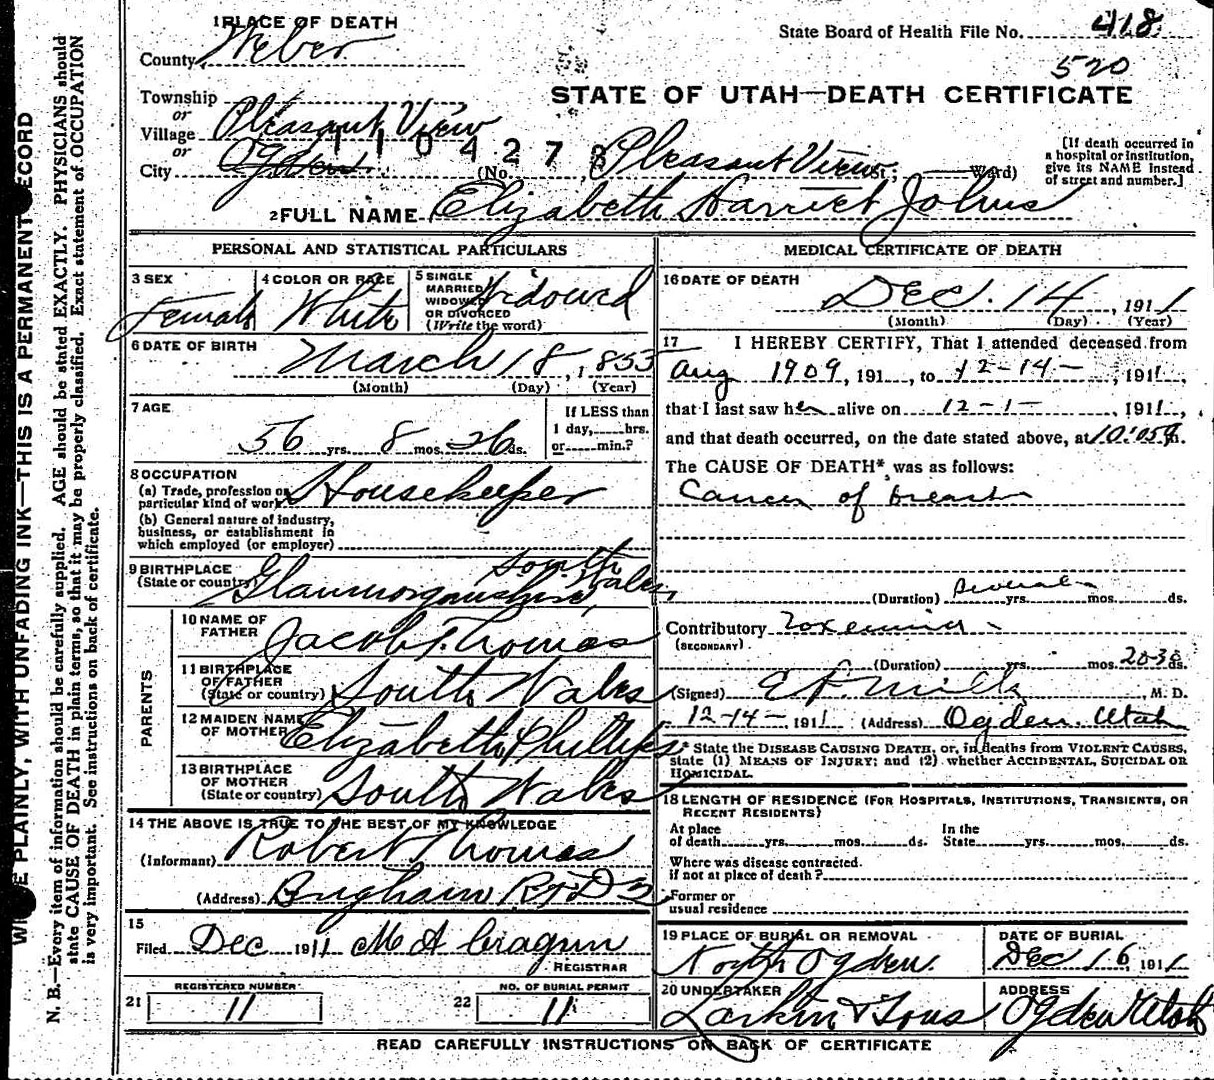 WRITE PLAINLY, WITH UNFADING INK—THIS IS A PERMANENT RECORD
N. B.—Every item of information should be carefully supplied. AGE should be stated EXACTLY. PHYSICIANS should
state CAUSE OF DEATH in plain terms, so that it may be properly classified. Exact statement of OCCUPATION
is very important. See instructions on back of certificate.
1 PLACE OF DEATH
County Weber
State Board of Health File No. 418
520
STATE OF UTAH—DEATH CERTIFICATE
Township
or
Village Pleasant View
or
City Ogden
1104278
(No. Pleasant View St; Ward)
[If death occurred in
a hospital or institution,
give its NAME instead
of street and number.]
2 FULL NAME Elizabeth Harriet Johns
PERSONAL AND STATISTICAL PARTICULARS
3 SEX Female
4 COLOR OR RACE White
5 SINGLE
MARRIED
WIDOWED
OR DIVORCED
(Write the word) Widowed
6 DATE OF BIRTH March 18, 1855
(Month) (Day) (Year)
7 AGE
56 yrs. 8 mos. 26 ds.
If LESS than
1 day, hrs.
or min.?
8 OCCUPATION
(a) Trade, profession or
particular kind of work Housekeeper
(b) General nature of industry,
business, or establishment in
which employed (or employer)
9 BIRTHPLACE
(State or country) Glanmorganshire South Wales
PARENTS
10 NAME OF
FATHER Jacob Thomas
11 BIRTHPLACE
OF FATHER
(State or country) South Wales
12 MAIDEN NAME
OF MOTHER Elizabeth Phillips
13 BIRTHPLACE
OF MOTHER
(State or country) South Wales
14 THE ABOVE IS TRUE TO THE BEST OF MY KNOWLEDGE
(Informant) Robert Thomas
(Address) Brigham R.F.D 3
15
Filed Dec 1911 M A Cragun
REGISTRAR
21 REGISTERED NUMBER 11
22 NO. OF BURIAL PERMIT 11
MEDICAL CERTIFICATE OF DEATH
16 DATE OF DEATH
Dec. 14, 1911
(Month) (Day) (Year)
17 I HEREBY CERTIFY, That I attended deceased from
Aug 1909, 191 , to 12-14-, 1911,
that I last saw her alive on 12-1-, 1911,
and that death occurred, on the date stated above, at 10:05 m.
The CAUSE OF DEATH* was as follows:
Cancer of breast
(Duration) several yrs. mos. ds.
Contributory Toxemia
(SECONDARY)
(Duration) yrs. mos. 20-30 ds.
(Signed) E P. Mills, M. D.
12-14-1911 (Address) Ogden. Utah
* State the DISEASE CAUSING DEATH, or, in deaths from VIOLENT CAUSES,
state (1) MEANS OF INJURY; and (2) whether ACCIDENTAL, SUICIDAL OR
HOMICIDAL.
18 LENGTH OF RESIDENCE (FOR HOSPITALS, INSTITUTIONS, TRANSIENTS, OR
RECENT RESIDENTS)
At place
of death yrs. mos. ds.
In the
State yrs. mos. ds.
Where was disease contracted.
if not at place of death?
Former or
usual residence
19 PLACE OF BURIAL OR REMOVAL
North Ogden.
DATE OF BURIAL
Dec 16, 1911
20 UNDERTAKER
Larkin & Sons
ADDRESS
Ogden Utah
READ CAREFULLY INSTRUCTIONS ON BACK OF CERTIFICATE